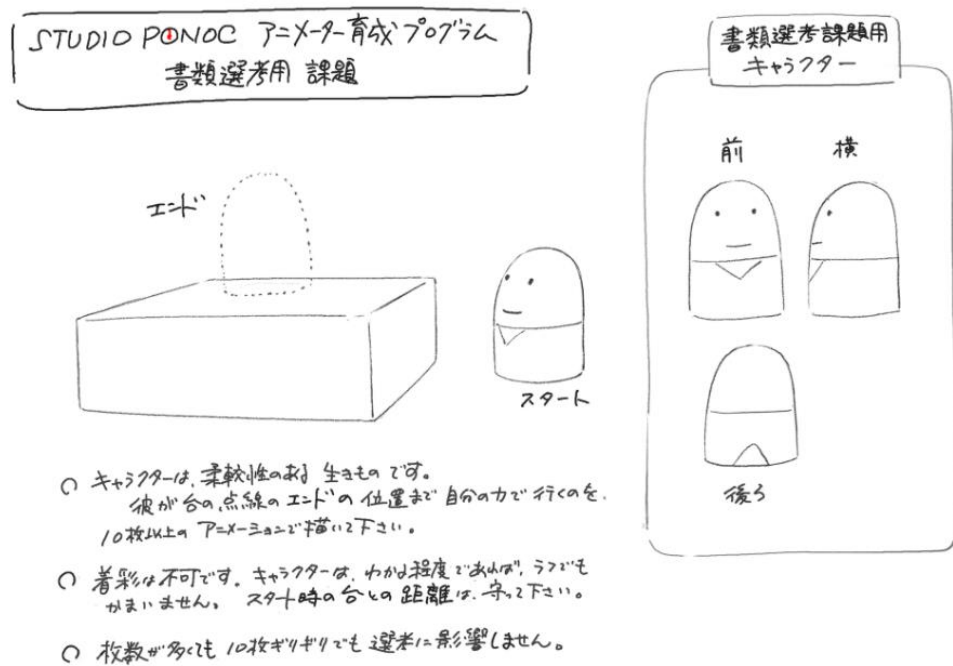 STUDIO PONOC アニメーター育成プログラム
書類選考用 課題
書類選考課題用
キャラクター
前
横
後ろ
エンド
スタート
○ キャラクターは、柔軟性のある 生きものです。
彼が台の点線のエンドの位置まで自分の力で行くのを、
10枚以上の アニメーションで描いて下さい。
○ 着彩は不可です。キャラクターは、わかる程度であれば、ラフでも
かまいません。 スタート時の台との距離は、守って下さい。
○ 枚数が多くても 10枚ギリギリでも選考に影響しません。